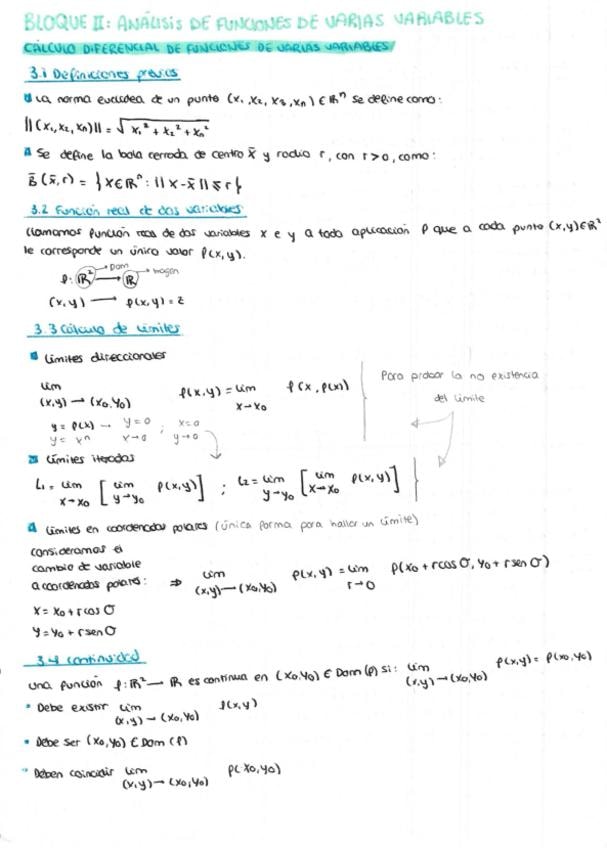 BLOQUE II: ANÁLISIS DE FUNCIONES DE VARIAS VARIABLES
CÁLCULO DIFERENCIAL DE FUNCIONES DE VARIAS VARIABLES
3.1 Definiciones previas
La norma euclídea de un punto (x₁, x₂, x₃, xₙ) ∈ ℝⁿ se define como:
||(x₁, x₂, xₙ)|| = √x₁² + x₂² + xₙ²
Se define la bola cerrada de centro x̄ y radio r, con r > 0, como:
B̄(x̄, r) = {x ∈ ℝⁿ : ||x - x̄|| ≤ r}
3.2 Función real de dos variables
Llamamos función real de dos variables x e y a toda aplicación f que a cada punto (x,y) ∈ ℝ²
le corresponde un único valor f(x,y).
Dom imagen
f: ℝ² → ℝ
(x,y) → f(x,y) = z
3.3 Cálculo de límites
Límites direccionales
lim (x,y) → (x₀,y₀) f(x,y) = lim x→x₀ f(x, f(x))
y = f(x) → y=0 x→0 ; x=0 y→0
y = xⁿ
Para probar la no existencia
del límite
Límites iterados
L₁ = lim x→x₀ [lim y→y₀ f(x,y)] ; L₂ = lim y→y₀ [lim x→x₀ f(x,y)]
Límites en coordenadas polares (única forma para hallar un límite)
consideramos el
cambio de variable
a coordenadas polares: ⇒ lim (x,y)→(x₀,y₀) f(x,y) = lim r→0 f(x₀ + r cos σ, y₀ + r sen σ)
x = x₀ + r cos σ
y = y₀ + r sen σ
3.4 continuidad
una función f: ℝ² → ℝ es continua en (x₀,y₀) ∈ Dom(f) si: lim (x,y)→(x₀,y₀) f(x,y) = f(x₀,y₀)
Debe existir lim (x,y)→(x₀,y₀) f(x,y)
Debe ser (x₀,y₀) ∈ Dom(f)
Deben coincidir lim (x,y)→(x₀,y₀) f(x₀,y₀)